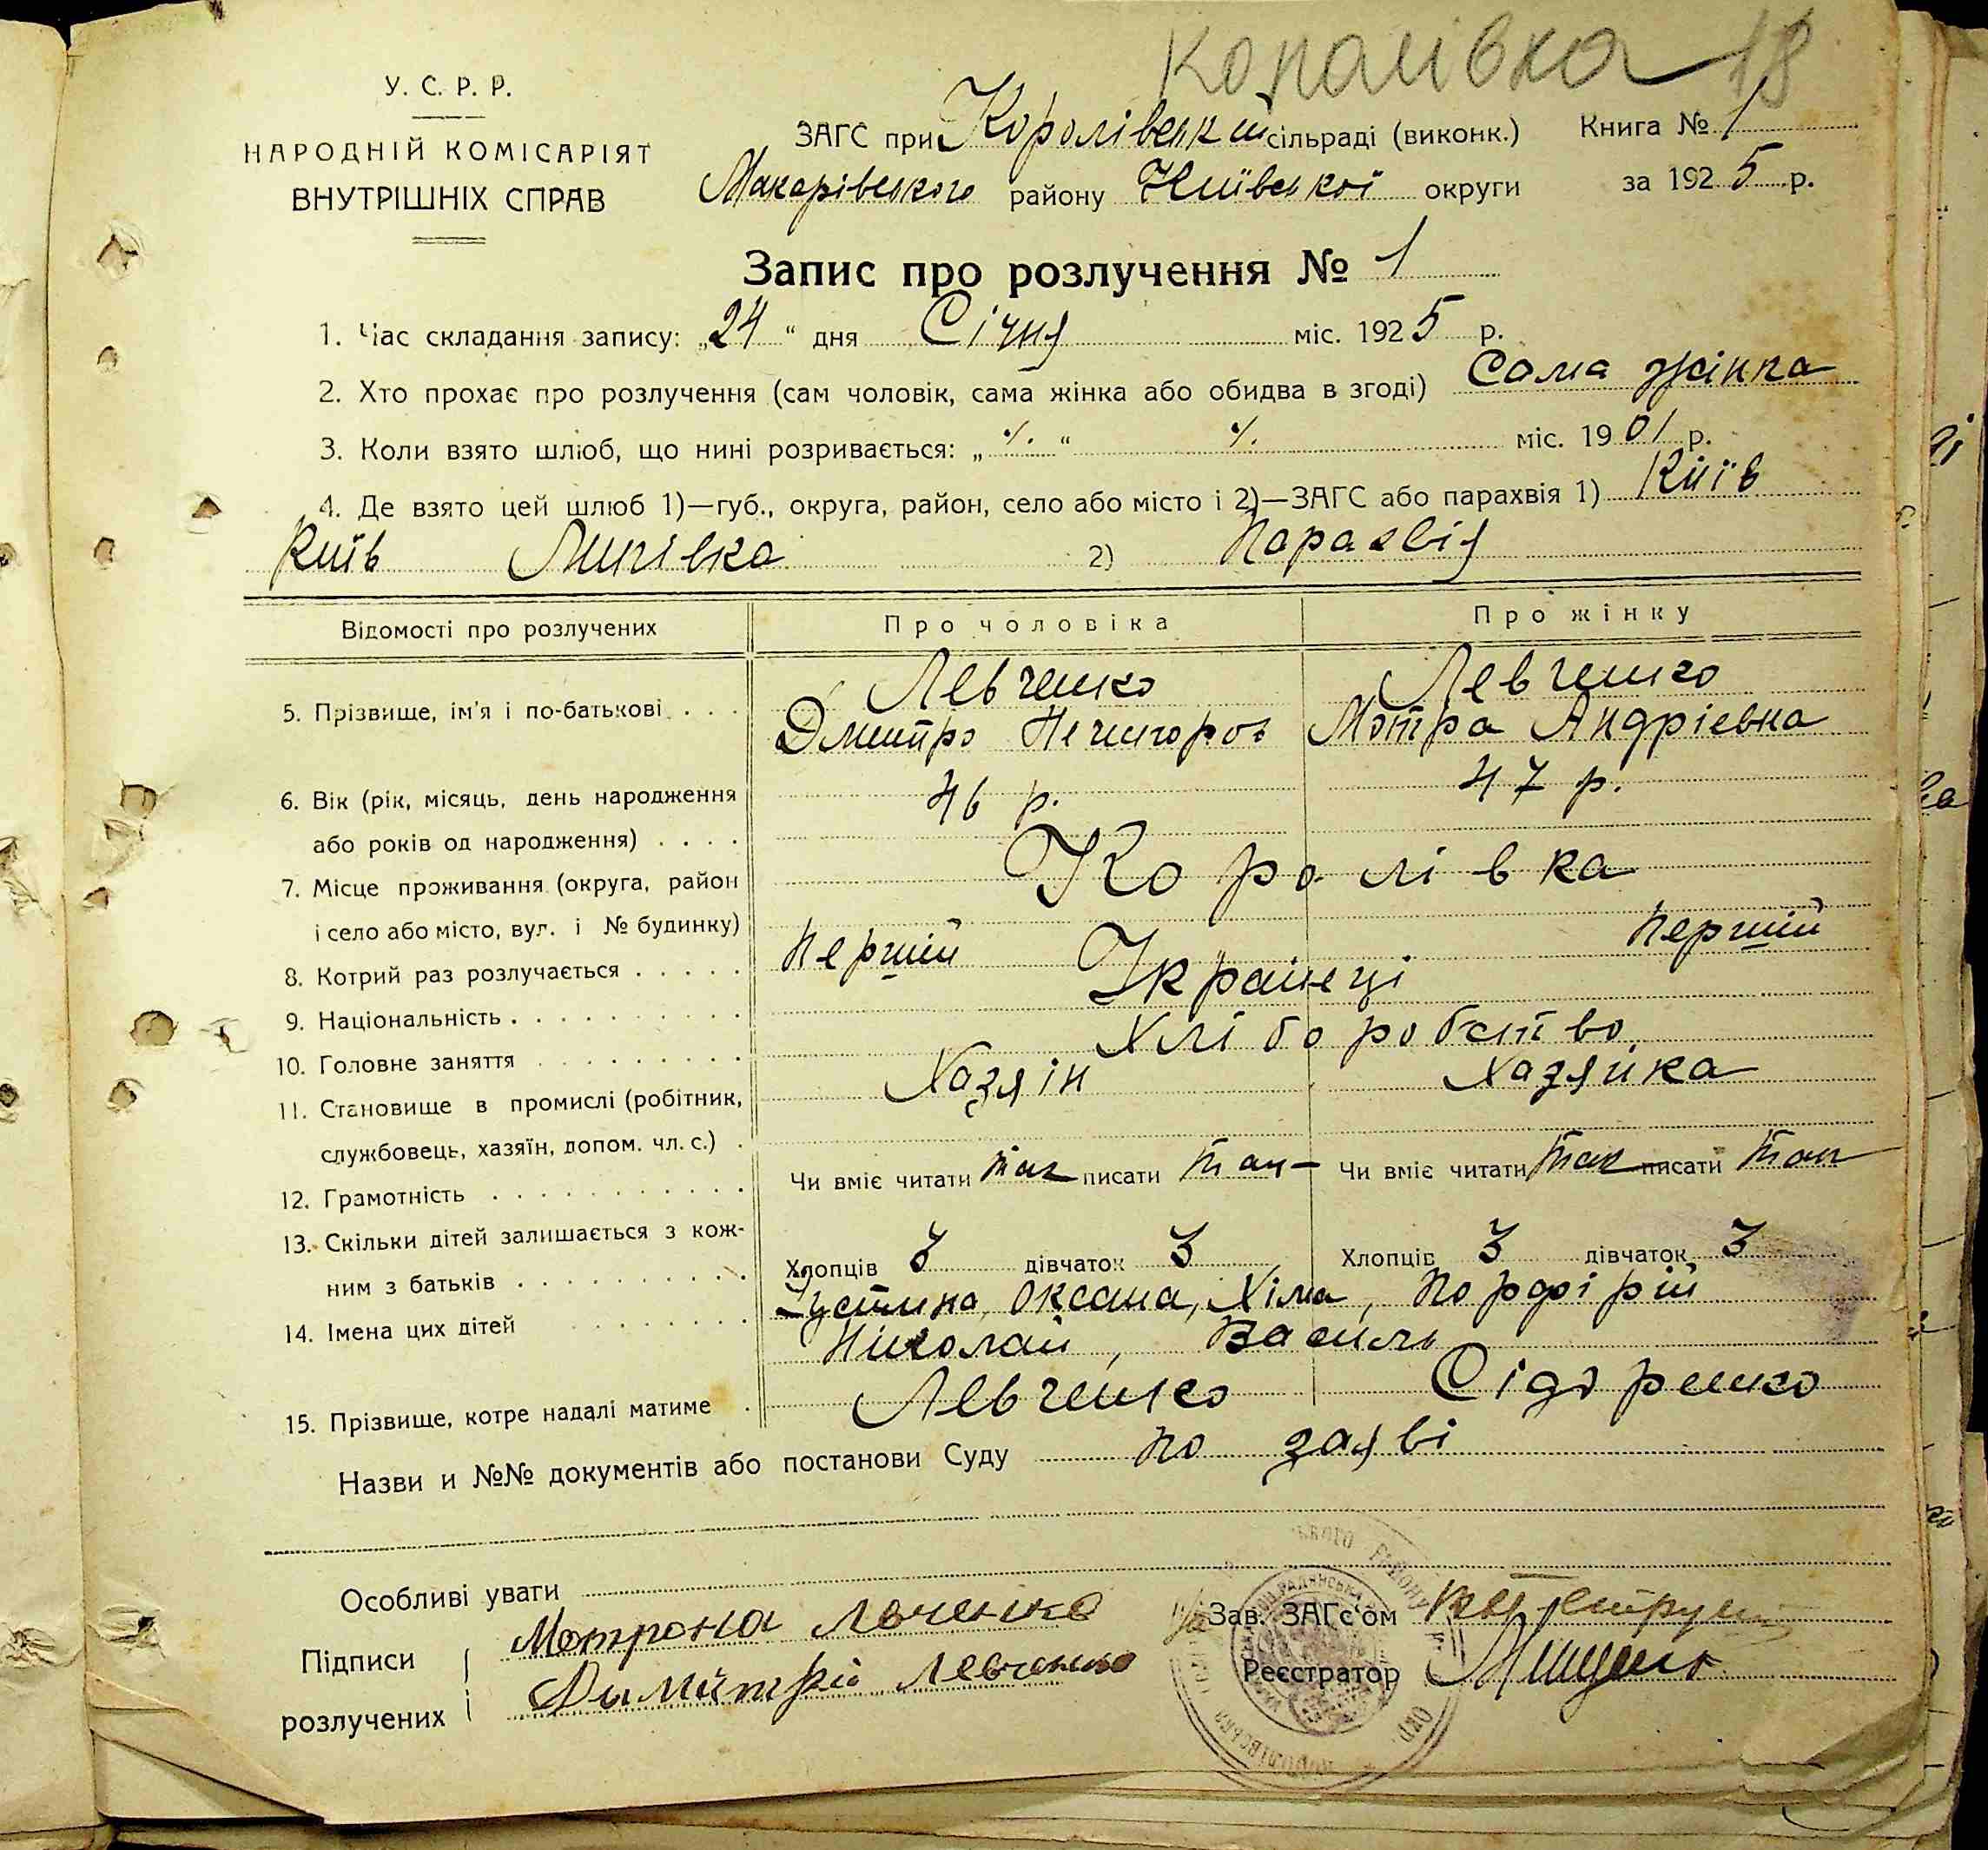 Королівка 18
У. С. Р. Р.
НАРОДНІЙ КОМІСАРІЯТ
ВНУТРІШНІХ СПРАВ
ЗАГС при Королівській сільраді (виконк.) Книга № 1
Макарівського району Київської округи за 1925 р.
Запис про розлучення № 1
1. Час складання запису: „24“ дня Січня міс. 1925 р.
2. Хто прохає про розлучення (сам чоловік, сама жінка або обидва в згоді) Сама жінка
3. Коли взято шлюб, що нині розривається: „ ·/. “ ·/. міс. 1901 р.
4. Де взято цей шлюб 1)—губ., округа, район, село або місто і 2)—ЗАГС або парахвія 1) Київ
Київ Липівка 2) Парахвія
Відомості про розлучених Про чоловіка Про жінку
5. Прізвище, ім'я і по-батькові . . . Левченко Левченко
Дмитро Мотра Андрієвна
6. Вік (рік, місяць, день народження 46 р. 47 р.
або років од народження) . . . .
7. Місце проживання (округа, район Королівка
і село або місто, вул. і № будинку)
8. Котрий раз розлучається . . . . . Перший Перший
9. Національність . . . . . . . . . . Україنці
10. Головне заняття . . . . . . . . . Хліборобство
11. Становище в промислі (робітник, Хазяін Хазяйка
службовець, хазяїн, допом. чл. с.) .
12. Грамотність . . . . . . . . . . . Чи вміє читати так писати так Чи вміє читати так писати так
13. Скільки дітей залишається з кож-
ним з батьків . . . . . . . . . . Хлопців 3 дівчаток 3 Хлопців 3 дівчаток 3
14. Імена цих дітей . . . . . . . . Устина, Оксана, Хіма, Порфірій
Николай, Василь
15. Прізвище, котре надалі матиме . Левченко Сідоренко
Назви и №№ документів або постанови Суду по заяві
Особливі уваги
Підписи Мотрона Левченко
розлучених Димитрій Левченко
Зав. ЗАГс'ом
Реєстратор